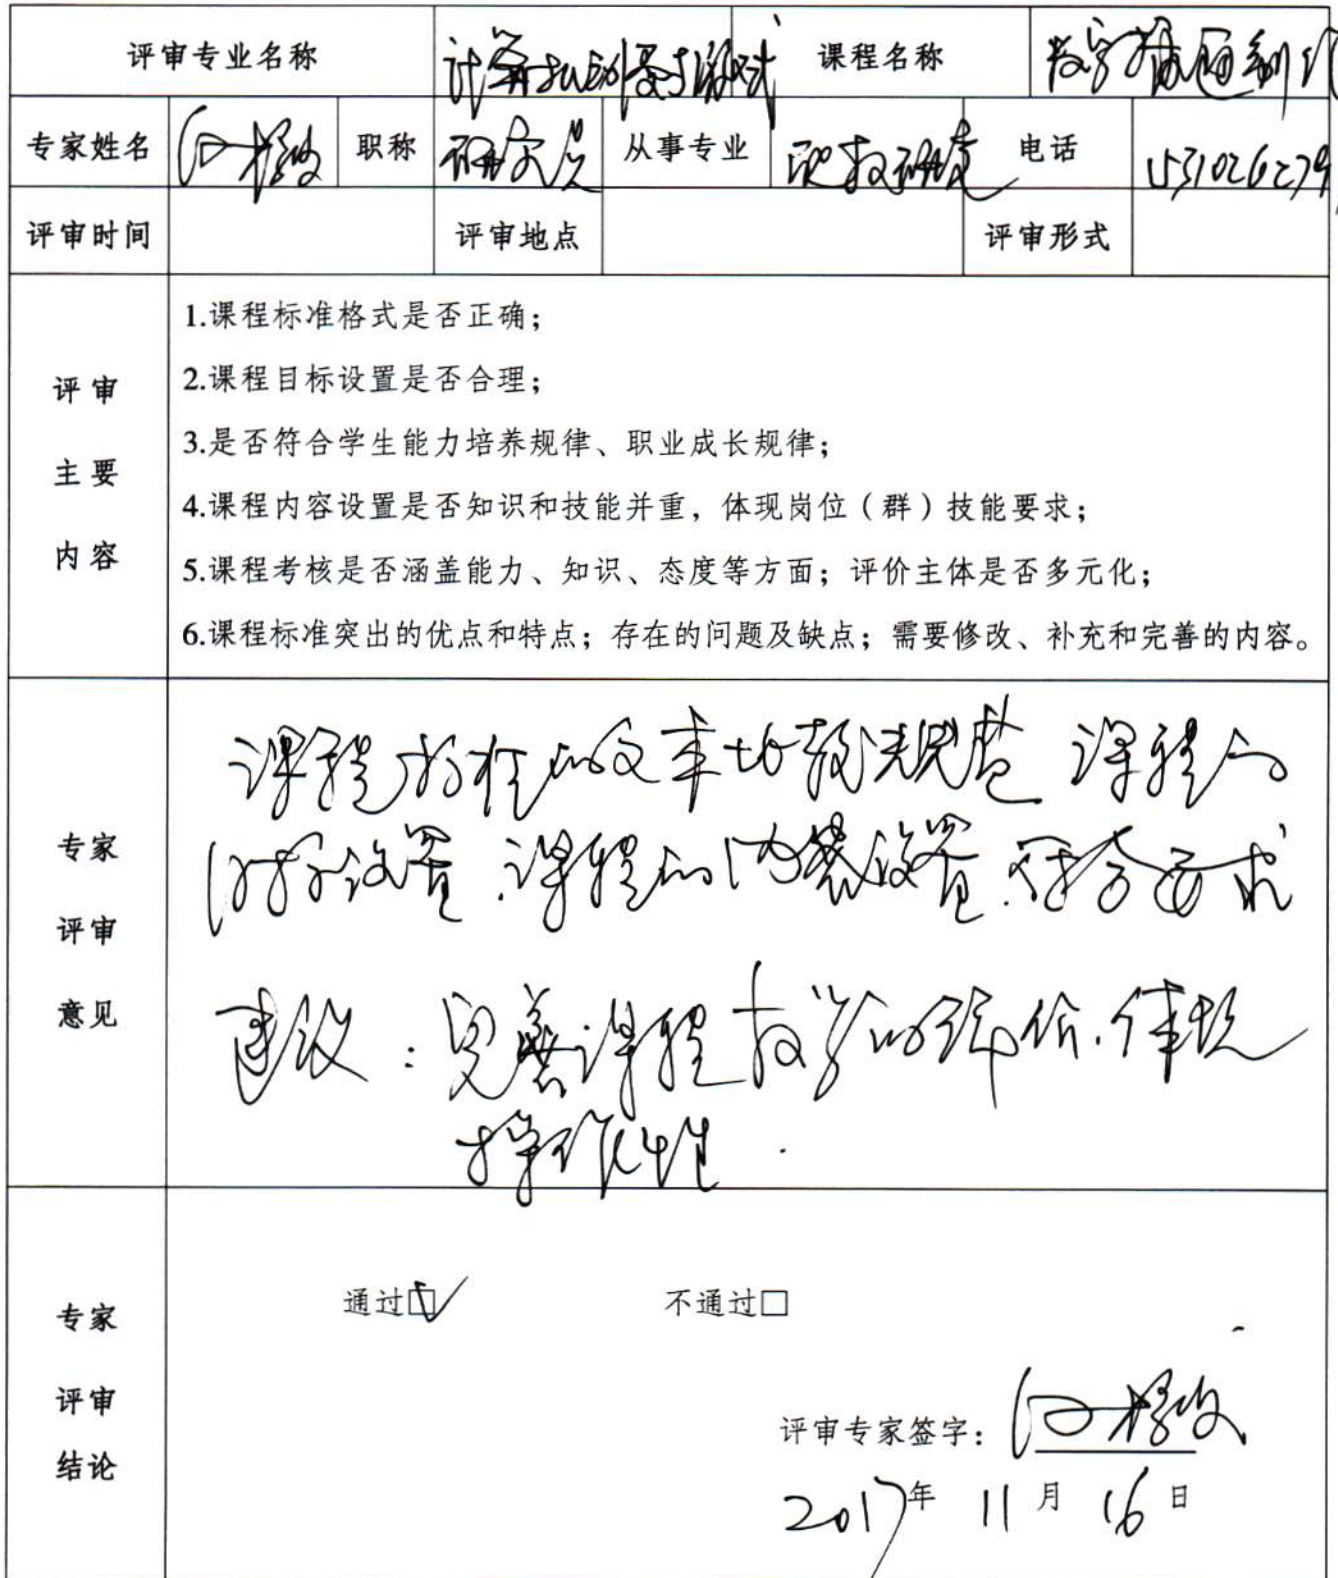 评审专业名称 计算机 测试 课程名称 数字 制作
专家姓名 职称 研究员 从事专业 职教研究 电话
评审时间 评审地点 评审形式
评审主要内容
1.课程标准格式是否正确；
2.课程目标设置是否合理；
3.是否符合学生能力培养规律、职业成长规律；
4.课程内容设置是否知识和技能并重，体现岗位（群）技能要求；
5.课程考核是否涵盖能力、知识、态度等方面；评价主体是否多元化；
6.课程标准突出的优点和特点；存在的问题及缺点；需要修改、补充和完善的内容。
专家评审意见
课程标准的文本比较规范 课程的
目标设置.课程的内容设置.符合要求
建议：完善课程教学的评价.体现
操作性.
专家评审结论
通过☑ 不通过□
评审专家签字：
2017年 11月 16日